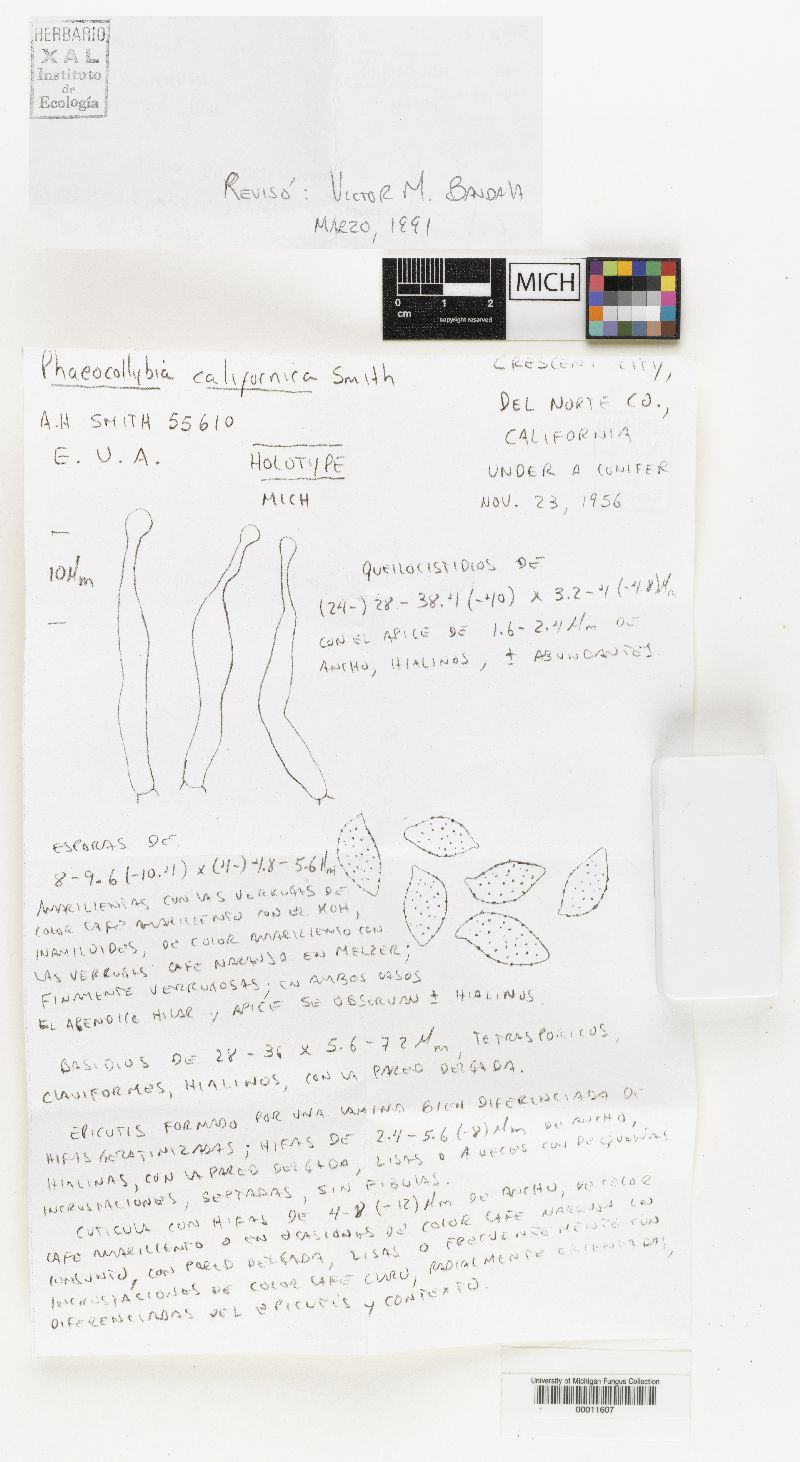 HERBARIO
XAL
Instituto
de
Ecología
REVISÓ: VICTOR M. BANDALA
MARZO, 1991
0 1 2
cm
copyright reserved
MICH
Phaeocollybia californica Smith
A.H SMITH 55610
E. U. A.
HOLOTYPE
MICH
CRESCENT CITY,
DEL NORTE CO.,
CALIFORNIA
UNDER A CONIFER
NOV. 23, 1956
10 µm
QUEILOCISTIDIOS DE
(24-) 28 - 38.4 (-40) x 3.2 - 4 (-4.8) µm
CON EL APICE DE 1.6 - 2.4 µm DE
ANCHO, HIALINOS, ± ABUNDANTES.
ESPORAS DE
8 - 9.6 (-10.4) x (4-) 4.8 - 5.6 µm
AMARILLENTAS CON LAS VERRUGAS DE
COLOR CAFE AMARILLENTO CON EL KOH,
INAMILOIDES, DE COLOR AMARILLENTO CON
LAS VERRUGAS CAFE NARANJA EN MELZER;
FINAMENTE VERRUGOSAS; EN AMBOS CASOS
EL APENDICE HILAR y APICE SE OBSERVAN ± HIALINOS.
BASIDIOS DE 28 - 36 x 5.6 - 7.2 µm, TETRASPORICOS,
CLAVIFORMES, HIALINOS, CON LA PARED DELGADA.
EPICUTIS FORMADO POR UNA LAMINA BIEN DIFERENCIADA DE
HIFAS GELATINIZADAS; HIFAS DE 2.4 - 5.6 (-8) µm DE ANCHO,
HIALINAS, CON LA PARED DELGADA, LISAS O A VECES CON PEQUEÑAS
INCRUSTACIONES, SEPTADAS, SIN FIBULAS.
CUTICULA CON HIFAS DE 4 - 8 (-12) µm DE ANCHO, DE COLOR
CAFE AMARILLENTO O EN OCASIONES DE COLOR CAFE NARANJA EN
CONJUNTO, CON PARED DELGADA, LISAS O FRECUENTEMENTE CON
INCRUSTACIONES DE COLOR CAFE CLARO, RADIALMENTE ORIENTADAS,
DIFERENCIADAS DEL EPICUTIS y CONTEXTO.
University of Michigan Fungus Collection
00011607